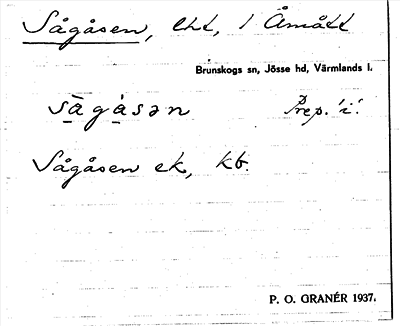 Sågåsen, lht, 1 Åmått
Brunskogs sn, Jösse hd, Värmlands l.
sàgåsən Prep. 'i'.
Sågåsen ek, kb.
P. O. GRANÉR 1937.